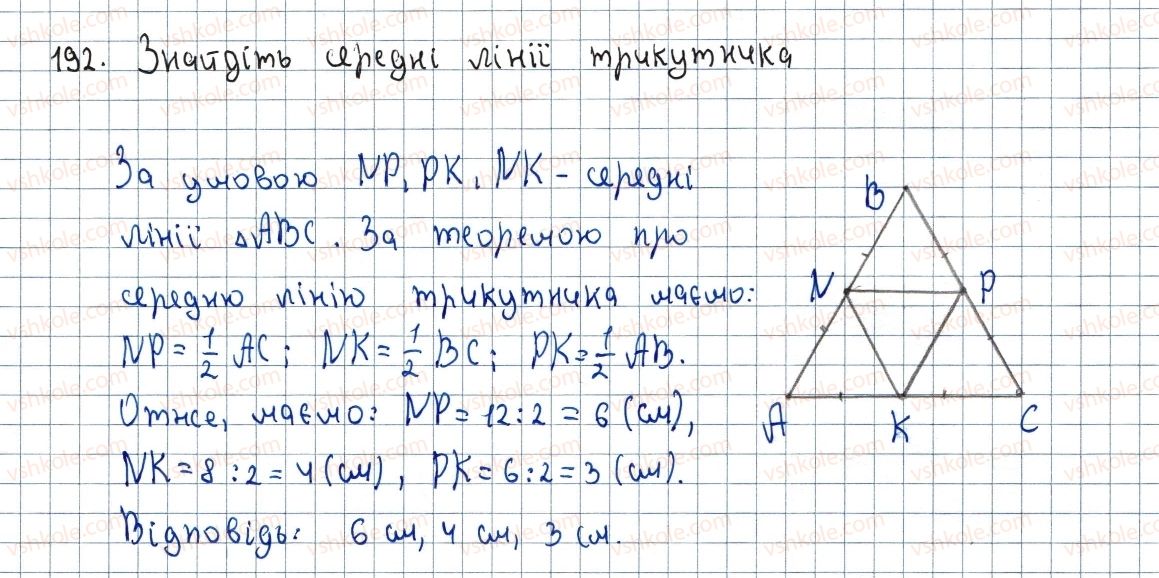 192. Знайдіть середні лінії трикутника
За умовою NP, PK, NK – середні
лінії △ABC. За теоремою про
середню лінію трикутника маємо:
NP = 1/2 AC; NK = 1/2 BC; PK = 1/2 AB.
Отже, маємо: NP = 12 : 2 = 6 (см),
NK = 8 : 2 = 4 (см), PK = 6 : 2 = 3 (см).
Відповідь: 6 см, 4 см, 3 см.
B
N P
A K C
vshkole.com